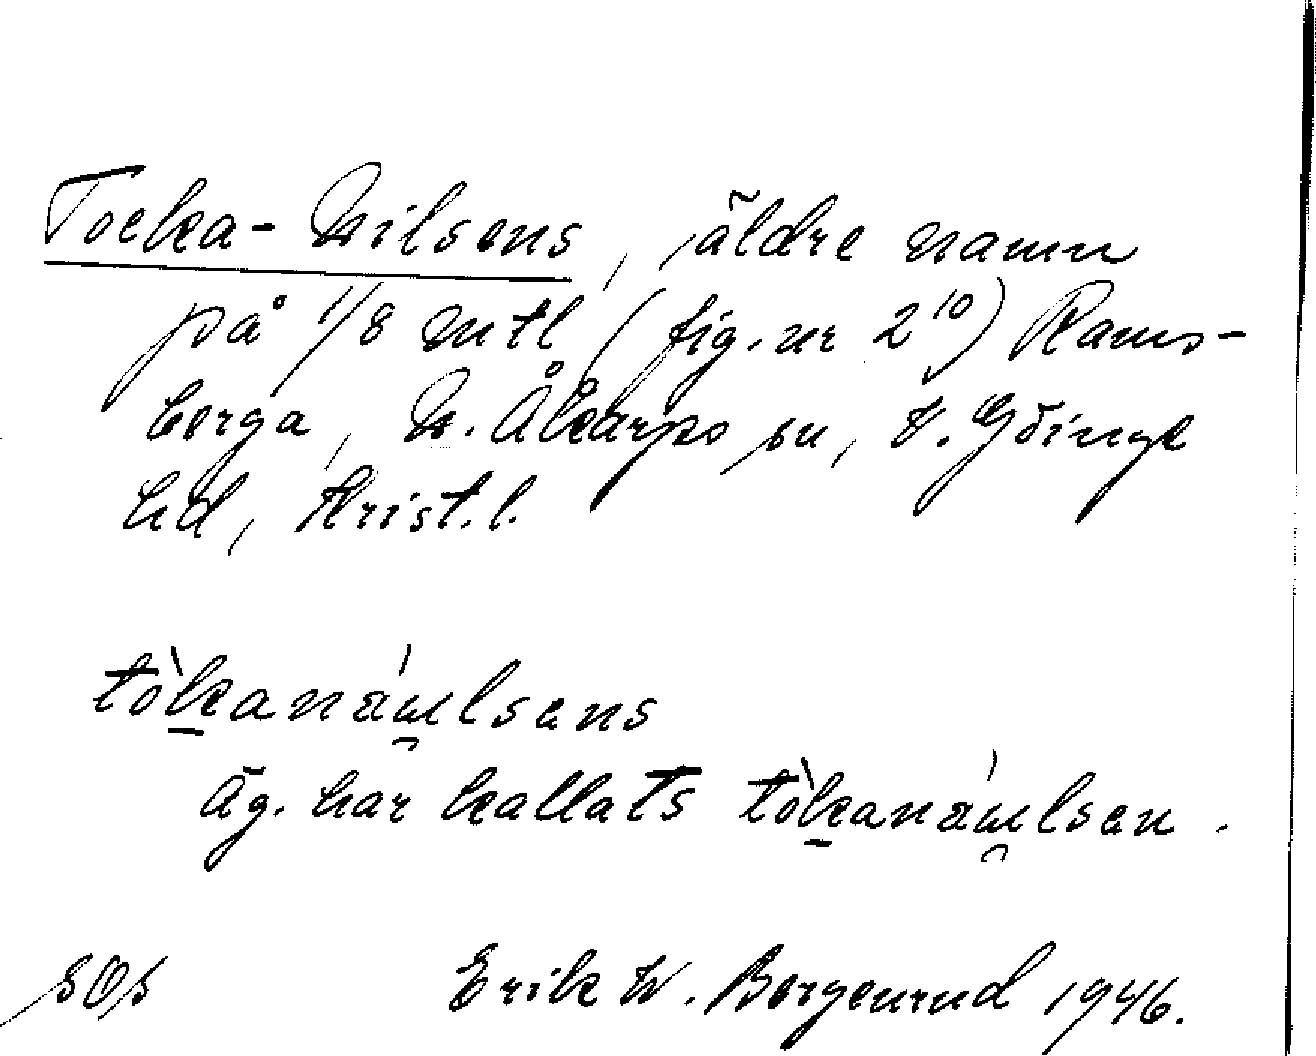 Tocka-Nilsens, äldre namn
på 1/8 mtl (fig. nr 2¹⁰) Rams-
berga, N. Åkarps sn, V. Göinge
hd, Krist. l.
tòkanáɯlsens
Äg. har kallats tòkanáɯlsen.
SOS Erik W. Bergenrud 1946.